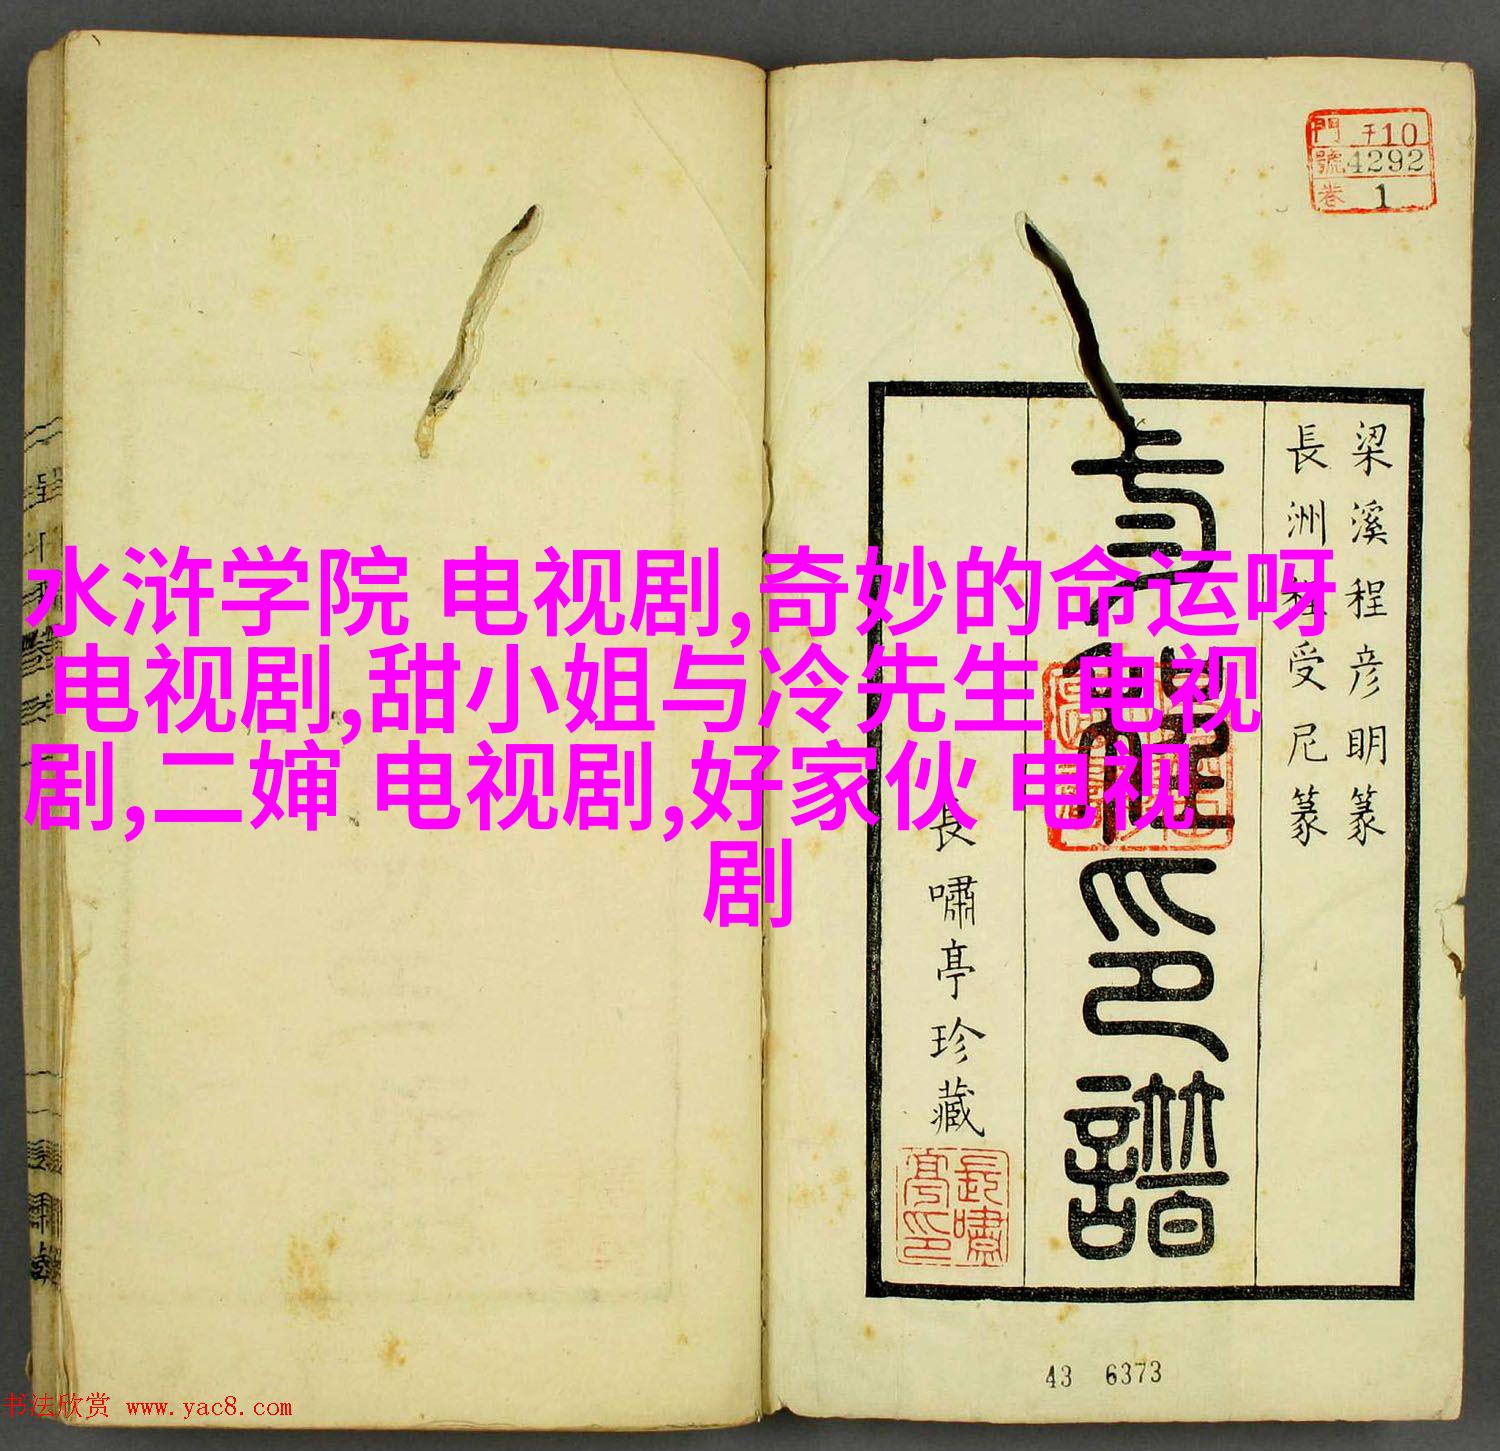 水浒学院 电视剧,奇妙的命运呀
电视剧,甜小姐与冷先生 电视
剧,二婶 电视剧,好家伙 电视
剧
門 子10
號 4292
卷 1
梁溪程彦明篆
長洲程受尼篆
印譜
長嘯亭珍藏
長嘯亭印
43 6373
书法欣赏 www.yac8.com